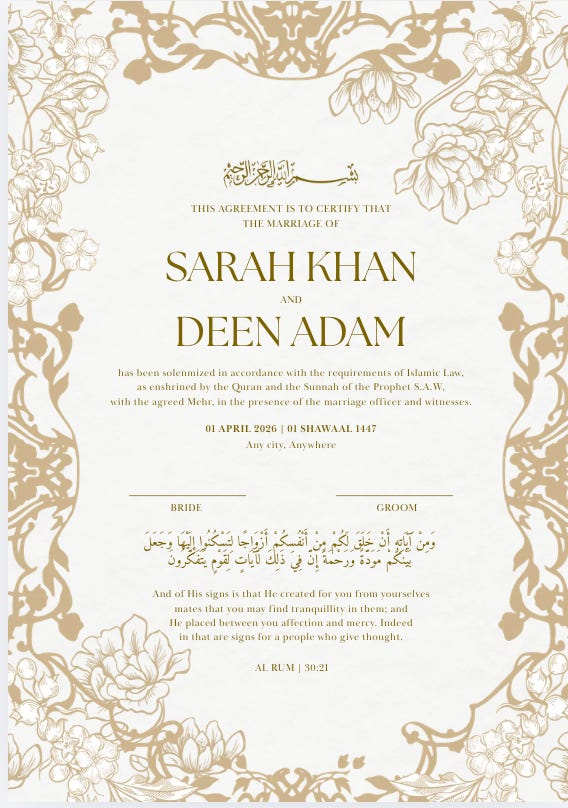 بسم الله الرحمن الرحيم
THIS AGREEMENT IS TO CERTIFY THAT
THE MARRIAGE OF
SARAH KHAN
AND
DEEN ADAM
has been solemnized in accordance with the requirements of Islamic Law,
as enshrined by the Quran and the Sunnah of the Prophet S.A.W,
with the agreed Mehr, in the presence of the marriage officer and witnesses.
01 APRIL 2026 | 01 SHAWAAL 1447
Any city, Anywhere
BRIDE GROOM
وَمِنْ آيَاتِهِ أَنْ خَلَقَ لَكُم مِّنْ أَنفُسِكُمْ أَزْوَاجًا لِّتَسْكُنُوا إِلَيْهَا وَجَعَلَ
بَيْنَكُم مَّوَدَّةً وَرَحْمَةً إِنَّ فِي ذَٰلِكَ لَآيَاتٍ لِّقَوْمٍ يَتَفَكَّرُونَ
And of His signs is that He created for you from yourselves
mates that you may find tranquillity in them; and
He placed between you affection and mercy. Indeed
in that are signs for a people who give thought.
AL RUM | 30:21